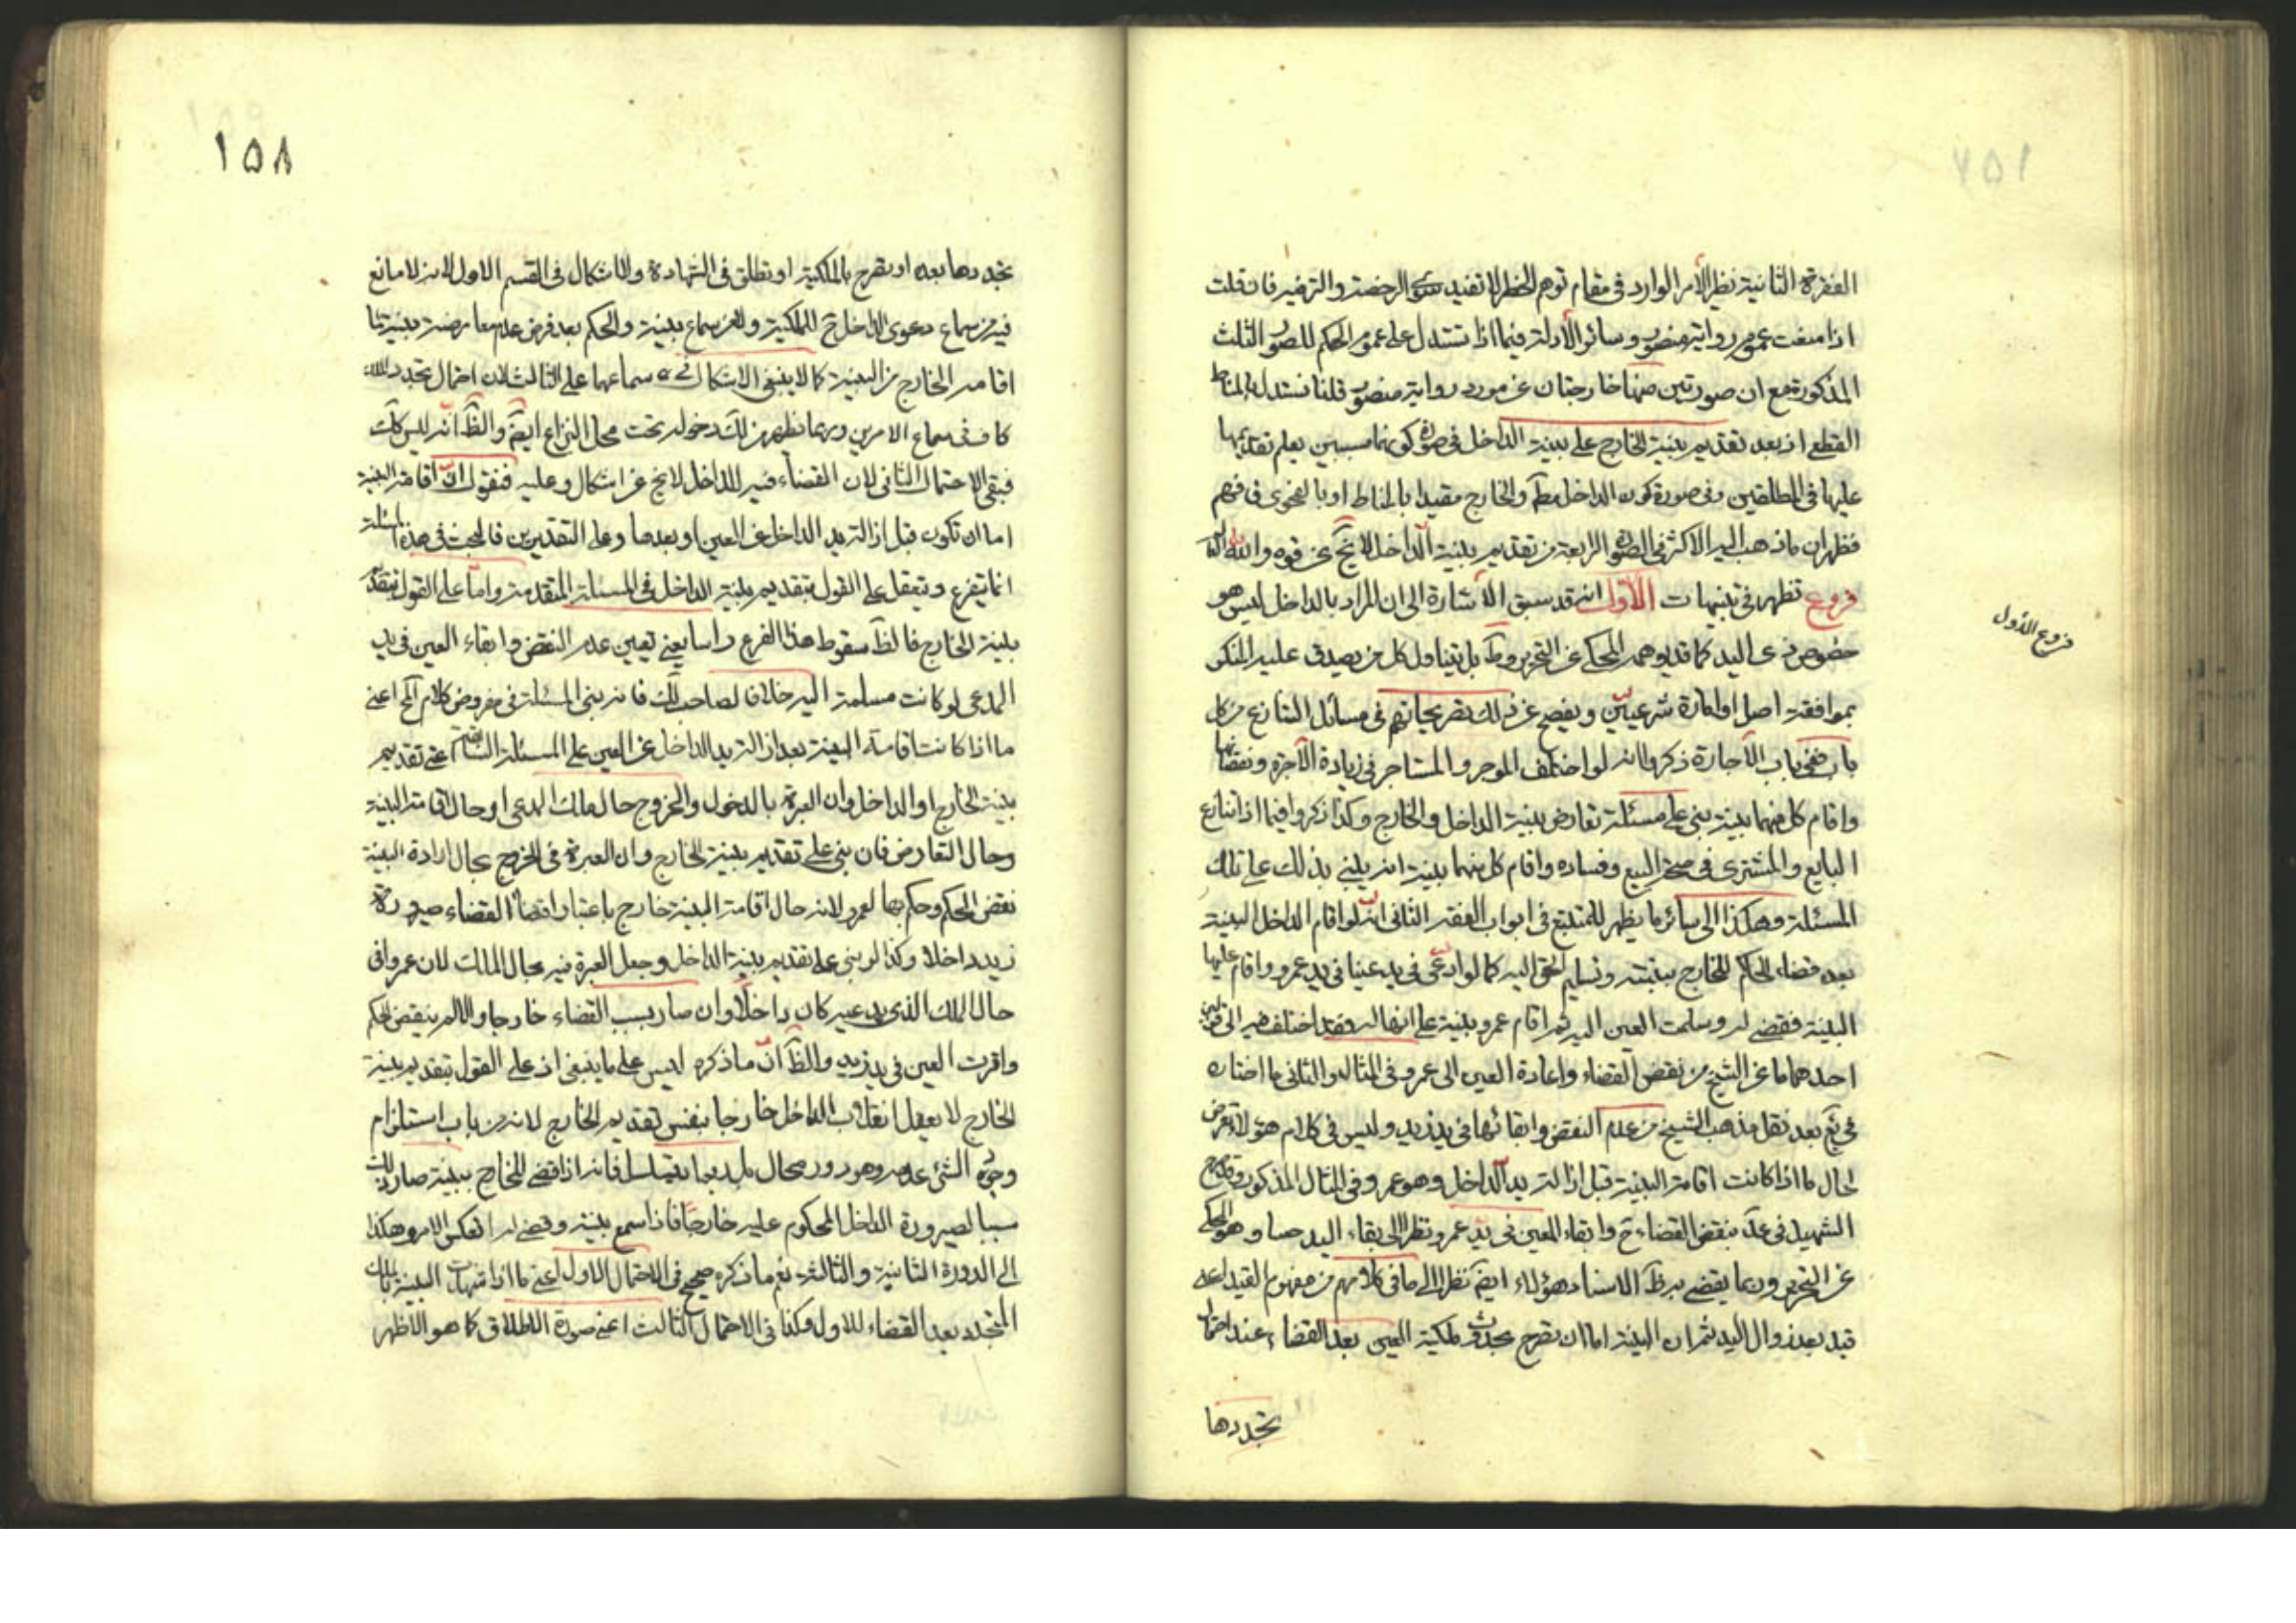 الفقرة الثانية نظير الأمر الوارد في مقام توهم الخطر لا تفيد سوى الرخصة والترفيه فان قلت
اذا منعت عموم رواية منصور وسائر الأدلة فيما اذا تستدل على عموم الحكم للصور الثلث
المذكورة مع ان صورتين منها خارجتان عن مورد رواية منصور قلنا نستدل بالمناط
القطعى اذ بعد تقديم بينة الخارج على بينة الداخل في صورة كونهما مسببين يعلم تقديمها
عليها في المطلقين وفي صورة كون الداخل مط والخارج مقيدا بالمناط او بالفحوى فافهم
فظهر ان ما ذهب اليه الاكثر في الصورة الرابعة من تقديم بينة الداخل لا يخ عن قوة والله
فروع تظهر في تنبيهات الأول انه قد سبق الأشارة الى ان المراد بالداخل ليس هو
فروع الأول
خصوص ذى اليد كما قد يوهمه المحكى عن التحرير وط بل يتناول كل من يصدق عليه المنكر
بموافقة اصل او امارة شرعيين ويفصح عن ذلك تصريحاتهم في مسائل التنازع من كل
باب ففي باب الأجارة ذكروا انه لو اختلف الموجر والمستاجر في زيادة الأجرة ونقصانها
واقام كل منهما بينة بنى على مسئلة تعارض بينة الداخل والخارج وكذا ذكروا فيما اذا تنازع
البايع والمشترى في صحة البيع وفساده واقام كل منهما بينة انه يبنى بذلك على تلك
المسئلة وهكذا الى سائر ما يظهر للمتتبع في ابواب الفقه الثاني انه لو اقام الداخل البينة
بعد قضاء الحاكم للخارج ببينته وتسليم الحق اليه كما لو ادعى زيد عينا في يد عمرو واقام عليها
البينة فقضى له وسلمت العين اليه ثم اقام عمرو بينة على انها له فقد اختلف فيه الى قولين
احدهما ما عن الشيخ من نقض القضاء واعادة العين الى عمرو في المثال والثاني ما اختاره
في يع بعد نقل مذهب الشيخ من عدم النقض وابقائها في يد زيد وليس في كلام هؤلاء تعرض
لحال ما اذا كانت اقامة البينة قبل ازالة يد الداخل وهو عمرو في المثال المذكور وقد صرح
الشهيد في عد بنقض القضاء ح وابقاء العين في يد عمرو نظرا الى بقاء اليد حسا وهو المحكى
عن التحرير وربما يقضى به ظ الاسناد هؤلاء ايضا نظرا الى ما في كلامهم من مفهوم القيد اعنى
قيد بعد زوال اليد ثم ان البينة اما ان تصرح بحدوث ملكية العين بعد القضاء عند احتمال
تجددها
١٥٨
تجددها بعده او تصرح بالملكية او تطلق في الشهادة ولا اشكال في القسم الاول لانه لا مانع
فيه من سماع دعوى الداخل ح للملكية ولا من سماع بينته والحكم بعد فرض عدم معارضة بينته لما
اقامه الخارج من البينة كما لا ينبغي الاشكال في سماعها على الثالث لان احتمال تجدد الملك
كاف في سماع الامرين وربما يظهر من لك دخوله تحت محل النزاع ايضا والظ انه ليس كك
فبقى الاحتمال الثاني لان القضاء فيه للداخل لا يخ عن اشكال وعليه فنقول ان اقامة البينة
اما ان تكون قبل ازالة يد الداخل عن العين او بعدها وعلى التقديرين فالبحث في هذه المسئلة
انما يتفرع ويتعقل على القول بتقديم بينة الداخل في المسئلة المتقدمة واما على القول بتقديم
بينة الخارج فالظ سقوط هذا الفرع راسا يعنى تعين عدم النقض وابقاء العين في يد
المدعى لو كانت مسلمة اليه خلافا لصاحب لك فانه بنى المسئلة في مفروض كلام المح اعنى
ما اذا كانت اقامة البينة بعد ازالة يد الداخل عن العين على المسئلة السابقة اعنى تقديم
بينة الخارج او الداخل وان العبرة بالدخول والخروج حال ملك المدعى او حال اقامة البينة
وحال التعارض فان بنى على تقديم بينة الخارج وان العبرة في الخروج بحال ارادة البينة
نقض الحكم وحكم بها لعمرو لانه حال اقامة البينة خارج باعتبار اقتضاء القضاء صيرورة
زيد داخلا وكذا لو بنى على تقديم بينة الداخل وجعل العبرة فيه بحال الملك لان عمروا في
حال الملك الذى يدعيه كان داخلا وان صار بسبب القضاء خارجا والا لم ينتقض الحكم
واقرت العين في يد زيد والظ ان ما ذكره ليس على ما ينبغي اذ على القول بتقديم بينة
الخارج لا يعقل انقلاب الداخل خارجا بنفس تقديم الخارج لانه من باب استلزام
وجود الشئ عدمه وهو دور محال بل ربما يتسلسل فانه اذا قضى للخارج ببينة صار ذلك
سببا لصيرورة الداخل المحكوم عليه خارجا فاذا سمع بينته وقضى له انعكس الامر وهكذا
الى الدورة الثانية والثالثة نعم ما ذكره صحيح في الاحتمال الاول اعنى ما اذا شهدت البينة بالملك
المتجدد بعد القضاء للاول وكذا في الاحتمال الثالث اعنى صورة الاطلاق كما هو الأظهر